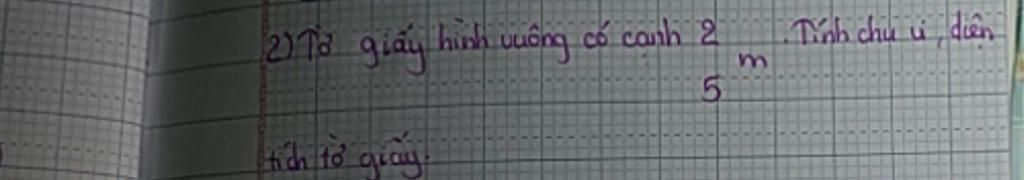 2) Tờ giấy hình vuông có cạnh 2/5 m. Tính chu vi, diện
tích tờ giấy.